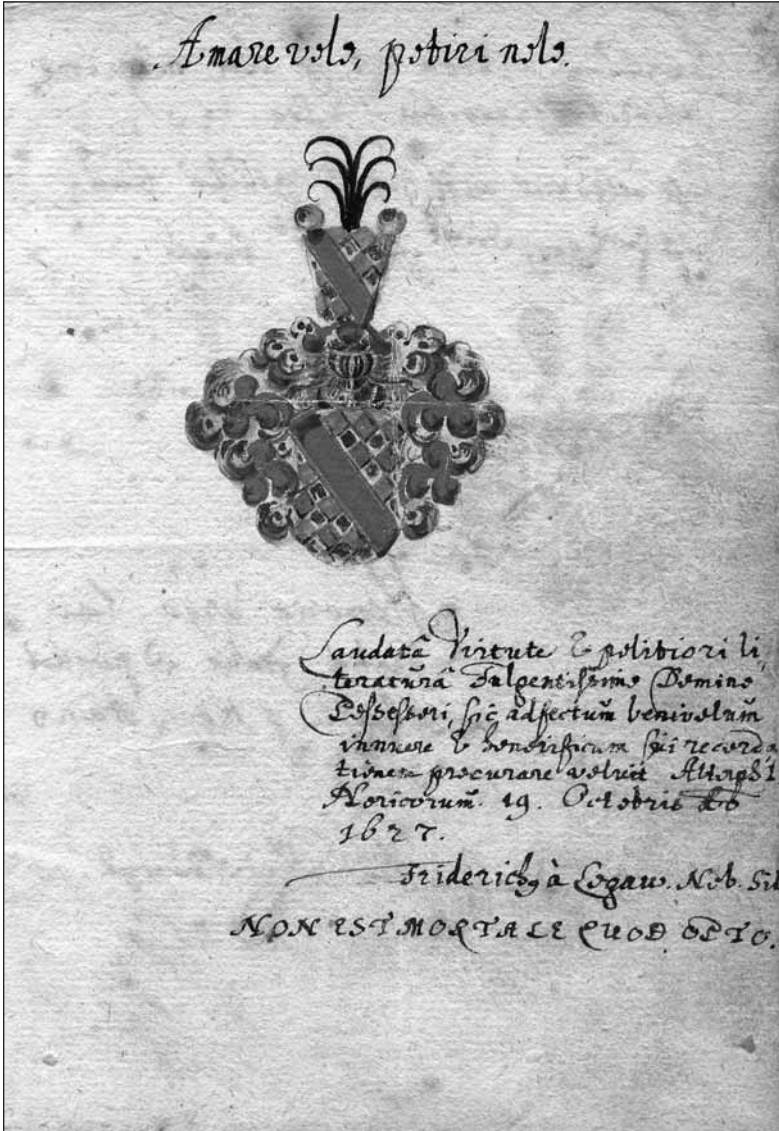 Amare volo, potiri nolo.
Laudatâ Virtute & politiori li,
teraturâ Fulgentissimo Domino
Possessori, sic adfectum benivolum
innuere & honorificum sui recorda
tionem procurare voluit Altorphi
Noricorum. 19. Octobris Ao
1627.
Friderichꝰ à Logaw. Nob. Sil
NON EST MORTALE QUOD OPTO.